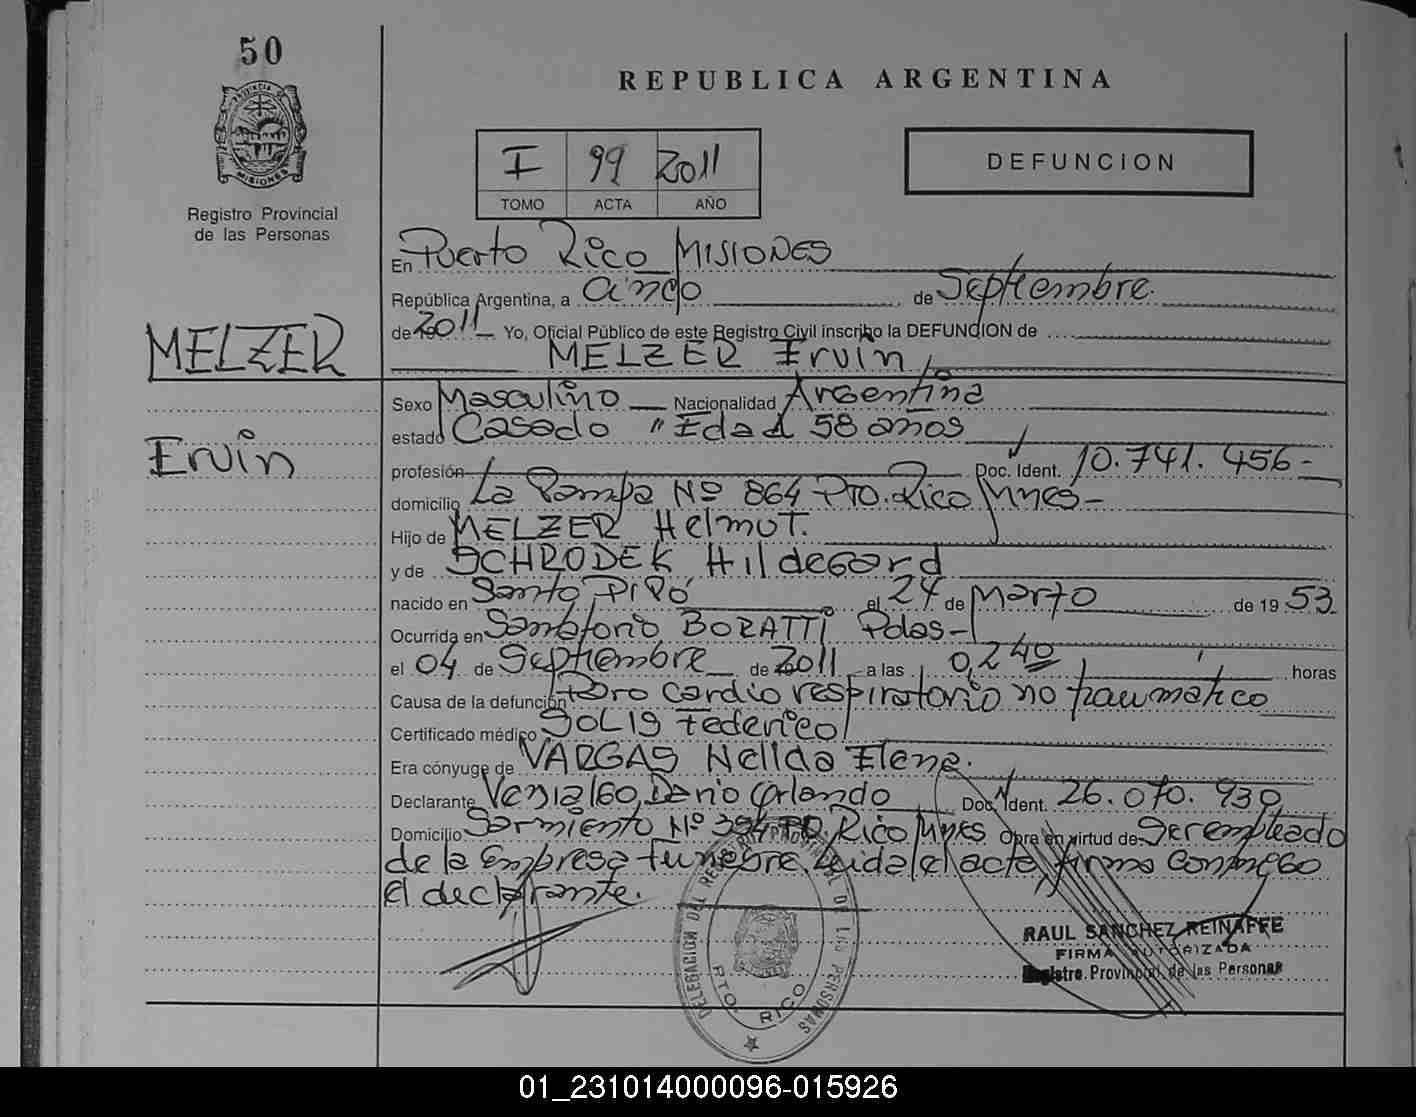 50
REPUBLICA ARGENTINA
PROVINCIA DE
MISIONES
Registro Provincial
de las Personas
I 99 2011
TOMO ACTA AÑO
DEFUNCION
En Puerto Rico MISIONES
República Argentina, a cinco de Septiembre.
de 2011 Yo, Oficial Público de este Registro Civil inscribo la DEFUNCION de
MELZER
MELZER Ervin
Sexo Masculino Nacionalidad Argentina
Ervin
estado Casado "Edad 58 años
profesión Doc. Ident. 10.741.456-
domicilio La Pampa Nº 864 Pto. Rico Mnes-
Hijo de MELZER Helmut.
y de SCHRODEK Hildegard
nacido en Santo Pipó el 24 de Marzo de 19 53.
Ocurrida en Sanatorio BORATTI Pdas-
el 04 de Septiembre de 2011 a las 0,240 horas
Causa de la defunción Paro cardio respiratorio no traumatico
Certificado médico SOLIS Federico
Era cónyuge de VARGAS Nelida Elena.
Declarante Venialgo, Dario Orlando Doc. Ident. 26.070.930
Domicilio Sarmiento Nº 394 Pto. Rico Mnes. Obra en virtud de Ser empleado
de la Empresa Funebre. Leida el acta, firma conmigo
el declarante.
DELEGACION DEL REGISTRO PROVINCIAL DE LAS PERSONAS
PTO. RICO
RAUL SANCHEZ REINAFFE
FIRMA AUTORIZADA
Registro Provincial de las Personas
01_231014000096-015926